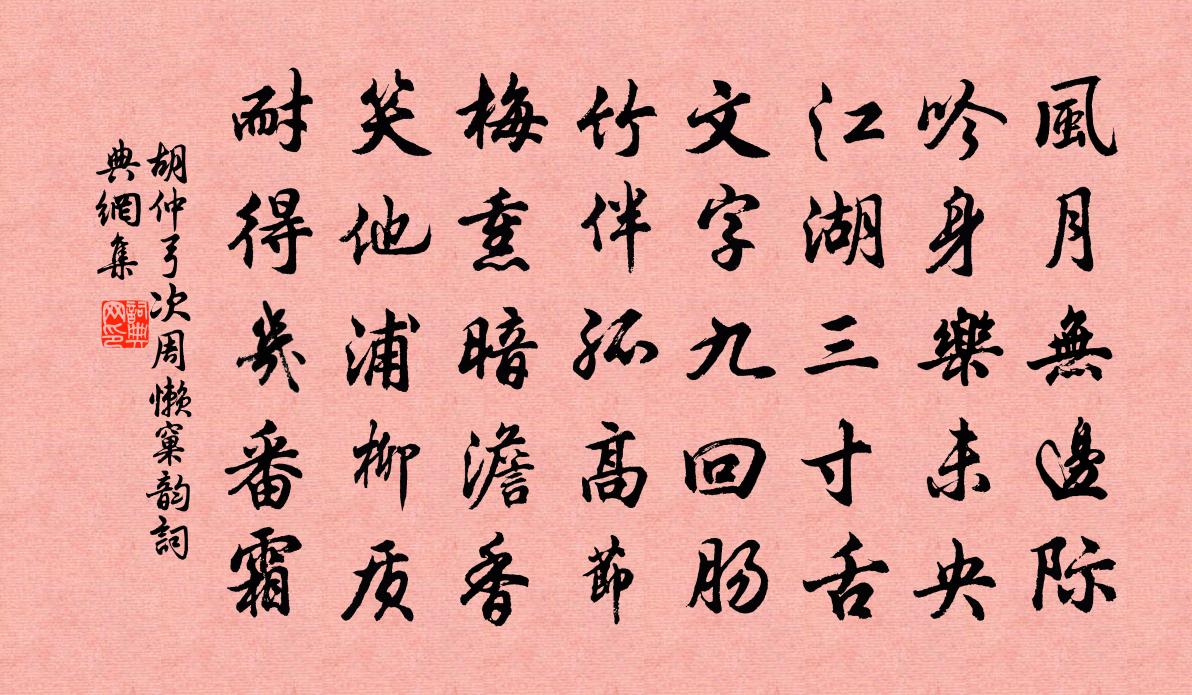 風月無邊際
吟身樂未央
江湖三寸舌
文字九回肠
竹伴孤高節
梅熏暗澹香
笑他浦柳质
耐得幾番霜
胡仲弓次周懒窠韵詞
典網集
詞典网印